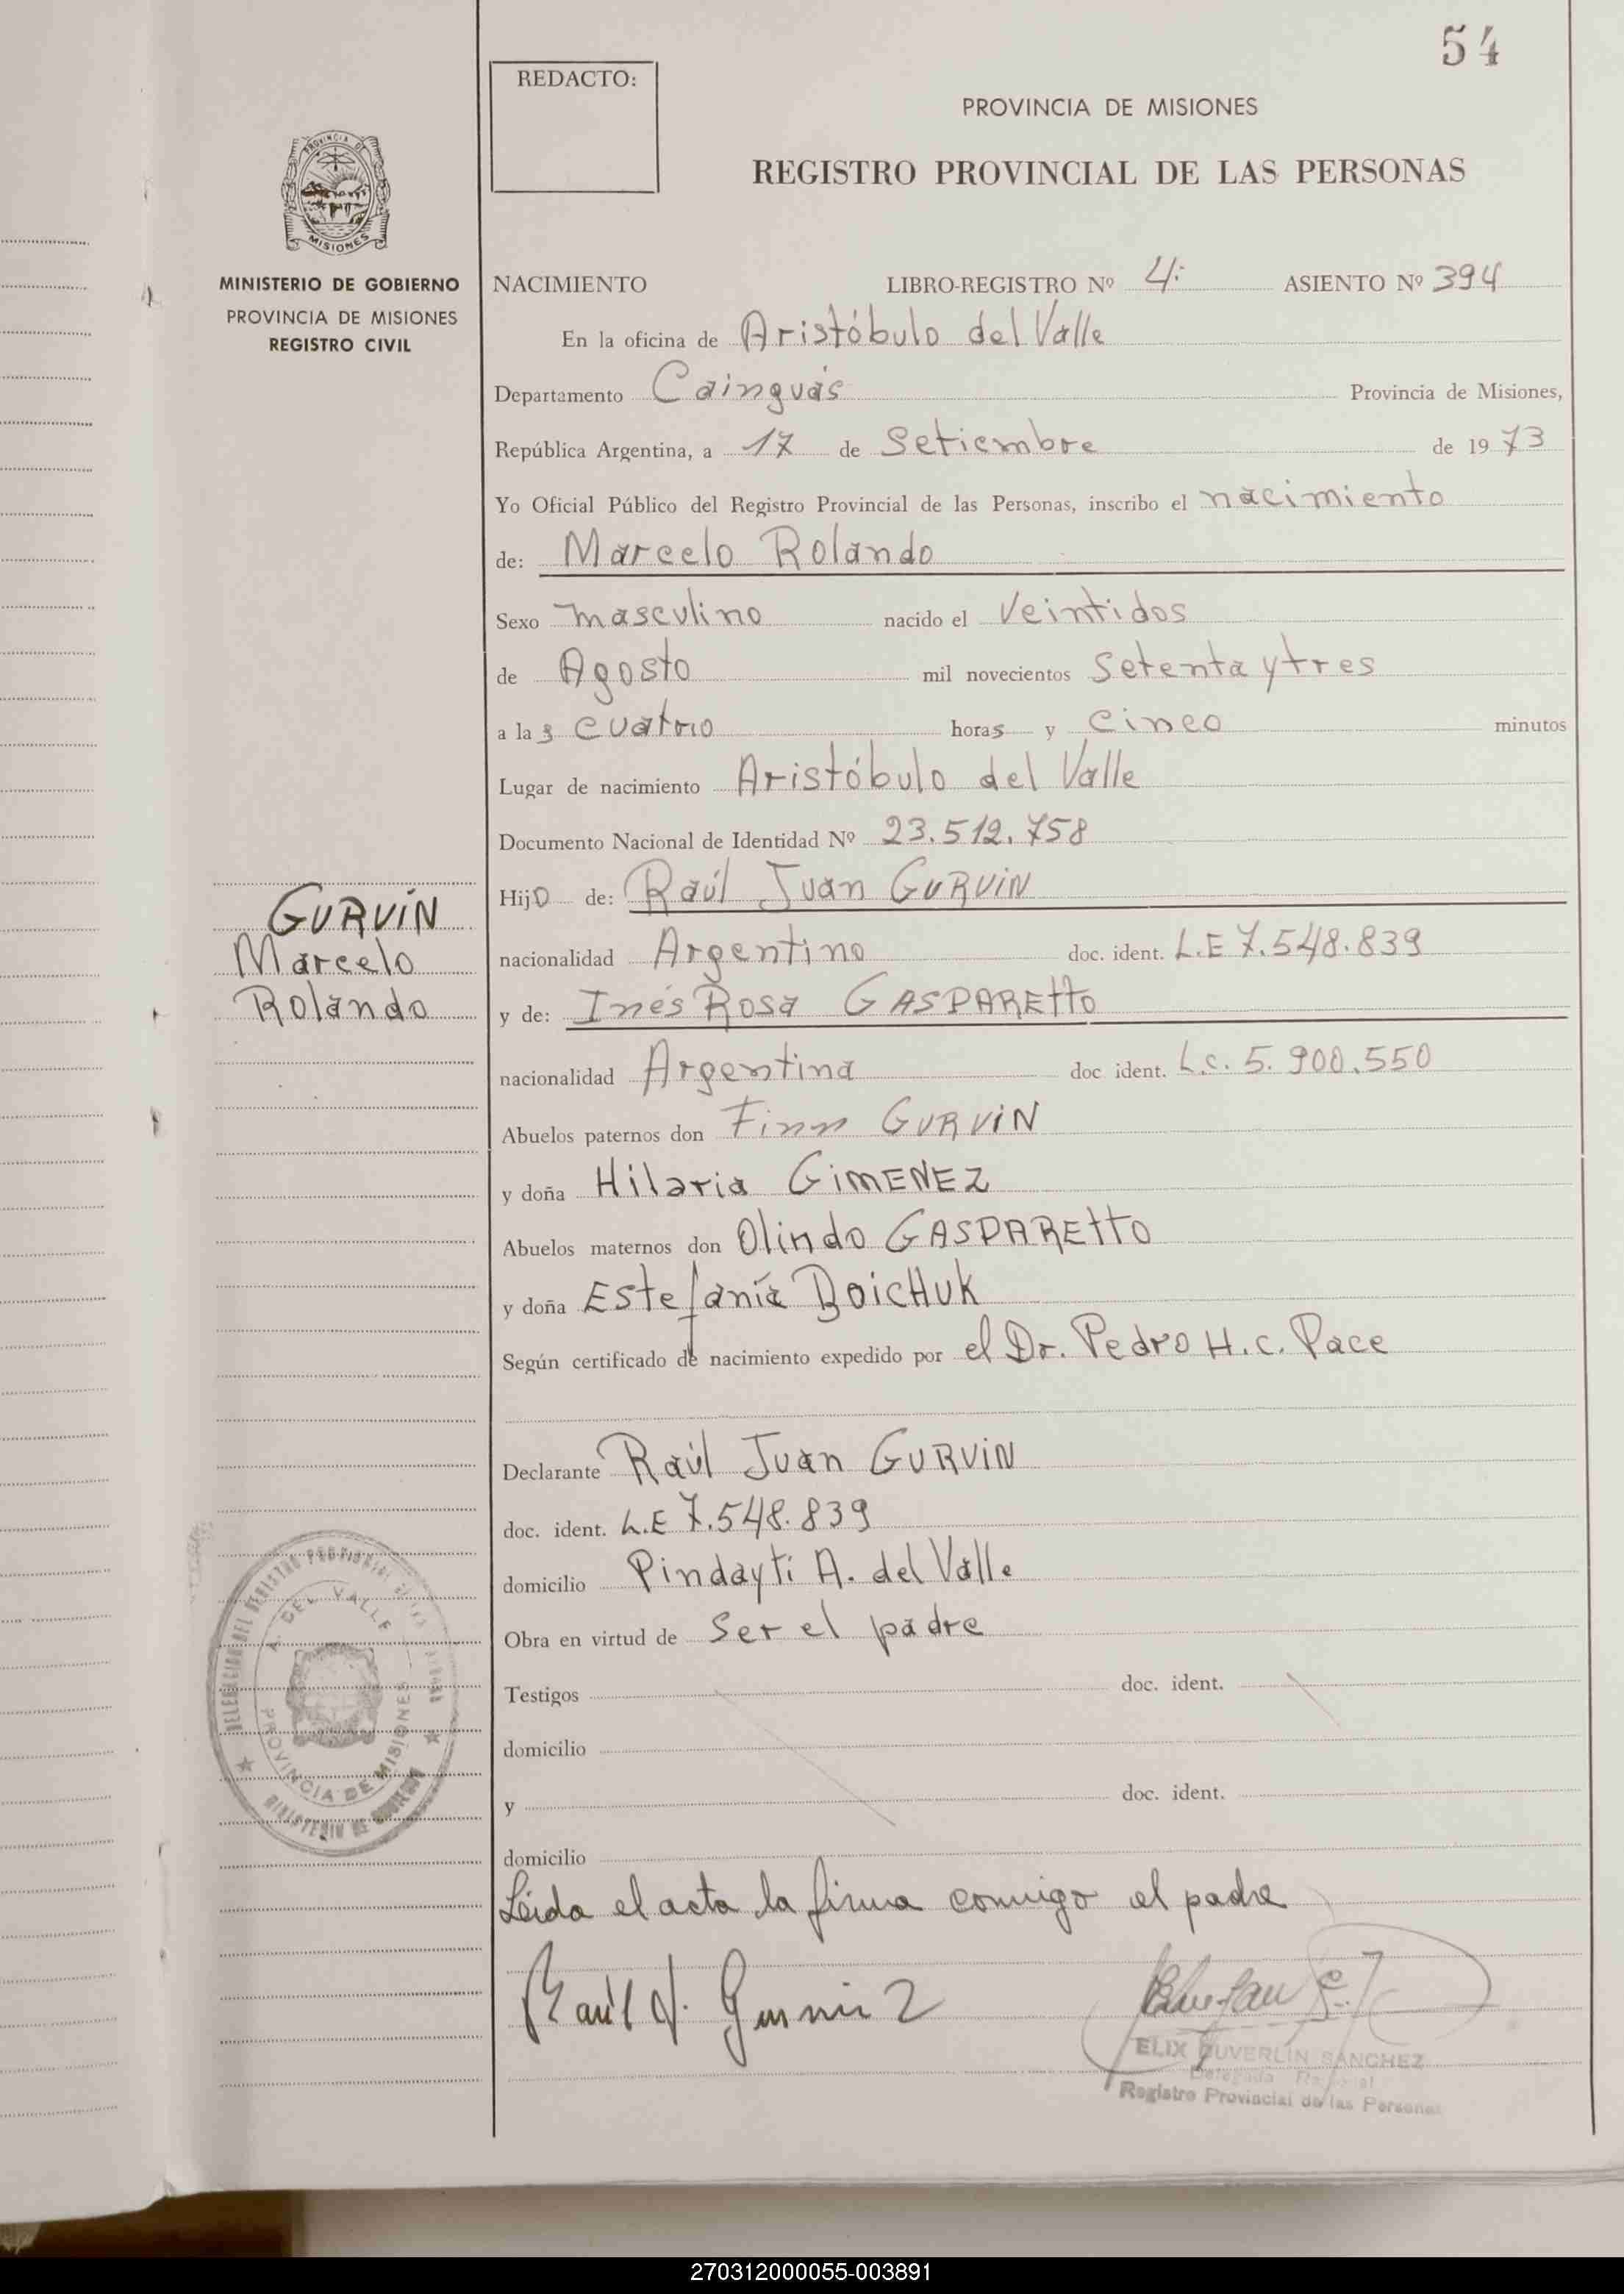 54
REDACTO:
PROVINCIA DE MISIONES
REGISTRO PROVINCIAL DE LAS PERSONAS
PROVINCIA DE
MISIONES
MINISTERIO DE GOBIERNO
PROVINCIA DE MISIONES
REGISTRO CIVIL
NACIMIENTO LIBRO-REGISTRO Nº 4: ASIENTO Nº 394
En la oficina de Aristóbulo del Valle
Departamento Cainguás Provincia de Misiones,
República Argentina, a 17 de Setiembre de 1973
Yo Oficial Público del Registro Provincial de las Personas, inscribo el nacimiento
de: Marcelo Rolando
Sexo masculino nacido el Veintidos
de Agosto mil novecientos Setenta y tres
a las cuatro horas y cinco minutos
Lugar de nacimiento Aristóbulo del Valle
Documento Nacional de Identidad Nº 23.512.758
Hijo de: Raúl Juan GURVIN
nacionalidad Argentino doc. ident. L.E 7.548.839
y de: Inés Rosa GASPARETTO
nacionalidad Argentina doc ident. L.C. 5.900.550
Abuelos paternos don Finn GURVIN
y doña Hilaria GIMENEZ
Abuelos maternos don Olindo GASPARETTO
y doña Estefanía BOICHUK
Según certificado de nacimiento expedido por el Dr. Pedro H.C. Pace
Declarante Raúl Juan GURVIN
doc. ident. L.E 7.548.839
domicilio Pindaytí A. del Valle
Obra en virtud de Ser el padre
Testigos doc. ident.
domicilio
y doc. ident.
domicilio
Leida el acta la firma conmigo el padre
Raúl J. Gurvin
ELIX DUVERLIN SANCHEZ
Delegada
Registro Provincial de las Personas
GURVIN
Marcelo
Rolando
DELEGACION DEL REGISTRO PROVINCIAL
A. DEL VALLE
PROVINCIA DE MISIONES
MINISTERIO DE GOBIERNO
270312000055-003891